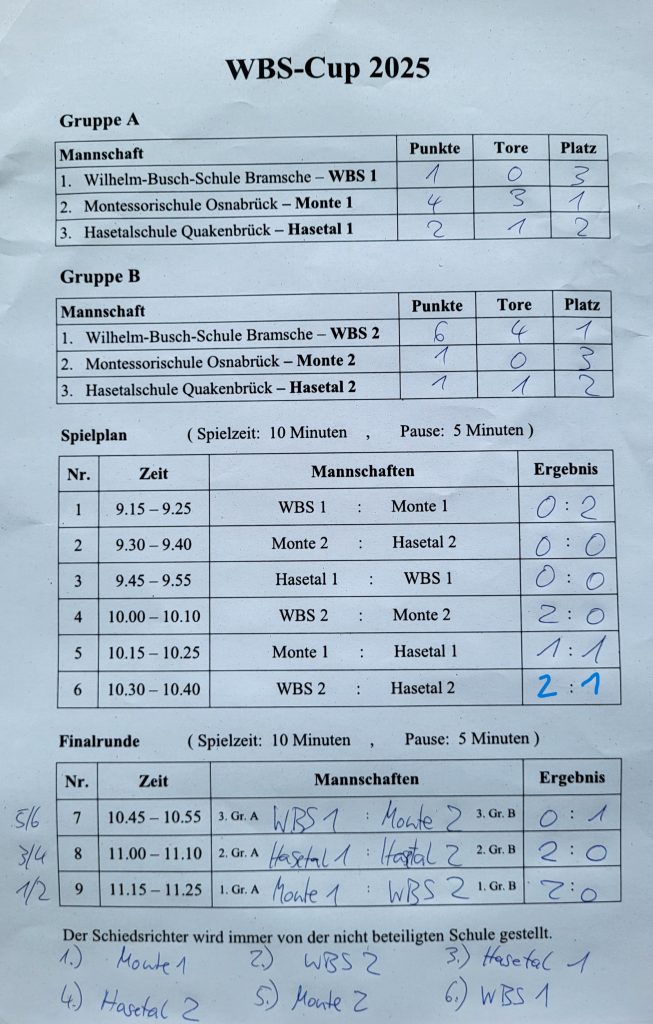 WBS-Cup 2025
Gruppe A
Mannschaft Punkte Tore Platz
1. Wilhelm-Busch-Schule Bramsche – WBS 1 1 0 3
2. Montessorischule Osnabrück – Monte 1 4 3 1
3. Hasetalschule Quakenbrück – Hasetal 1 2 1 2
Gruppe B
Mannschaft Punkte Tore Platz
1. Wilhelm-Busch-Schule Bramsche – WBS 2 6 4 1
2. Montessorischule Osnabrück – Monte 2 1 0 3
3. Hasetalschule Quakenbrück – Hasetal 2 1 1 2
Spielplan ( Spielzeit: 10 Minuten , Pause: 5 Minuten )
Nr. Zeit Mannschaften Ergebnis
1 9.15 – 9.25 WBS 1 : Monte 1 0 : 2
2 9.30 – 9.40 Monte 2 : Hasetal 2 0 : 0
3 9.45 – 9.55 Hasetal 1 : WBS 1 0 : 0
4 10.00 – 10.10 WBS 2 : Monte 2 2 : 0
5 10.15 – 10.25 Monte 1 : Hasetal 1 1 : 1
6 10.30 – 10.40 WBS 2 : Hasetal 2 2 : 1
Finalrunde ( Spielzeit: 10 Minuten , Pause: 5 Minuten )
Nr. Zeit Mannschaften Ergebnis
5/6 7 10.45 – 10.55 3. Gr. A WBS 1 : Monte 2 3. Gr. B 0 : 1
3/4 8 11.00 – 11.10 2. Gr. A Hasetal 1 : Hasetal 2 2. Gr. B 2 : 0
1/2 9 11.15 – 11.25 1. Gr. A Monte 1 : WBS 2 1. Gr. B 2 : 0
Der Schiedsrichter wird immer von der nicht beteiligten Schule gestellt.
1.) Monte 1 2.) WBS 2 3.) Hasetal 1
4.) Hasetal 2 5.) Monte 2 6.) WBS 1